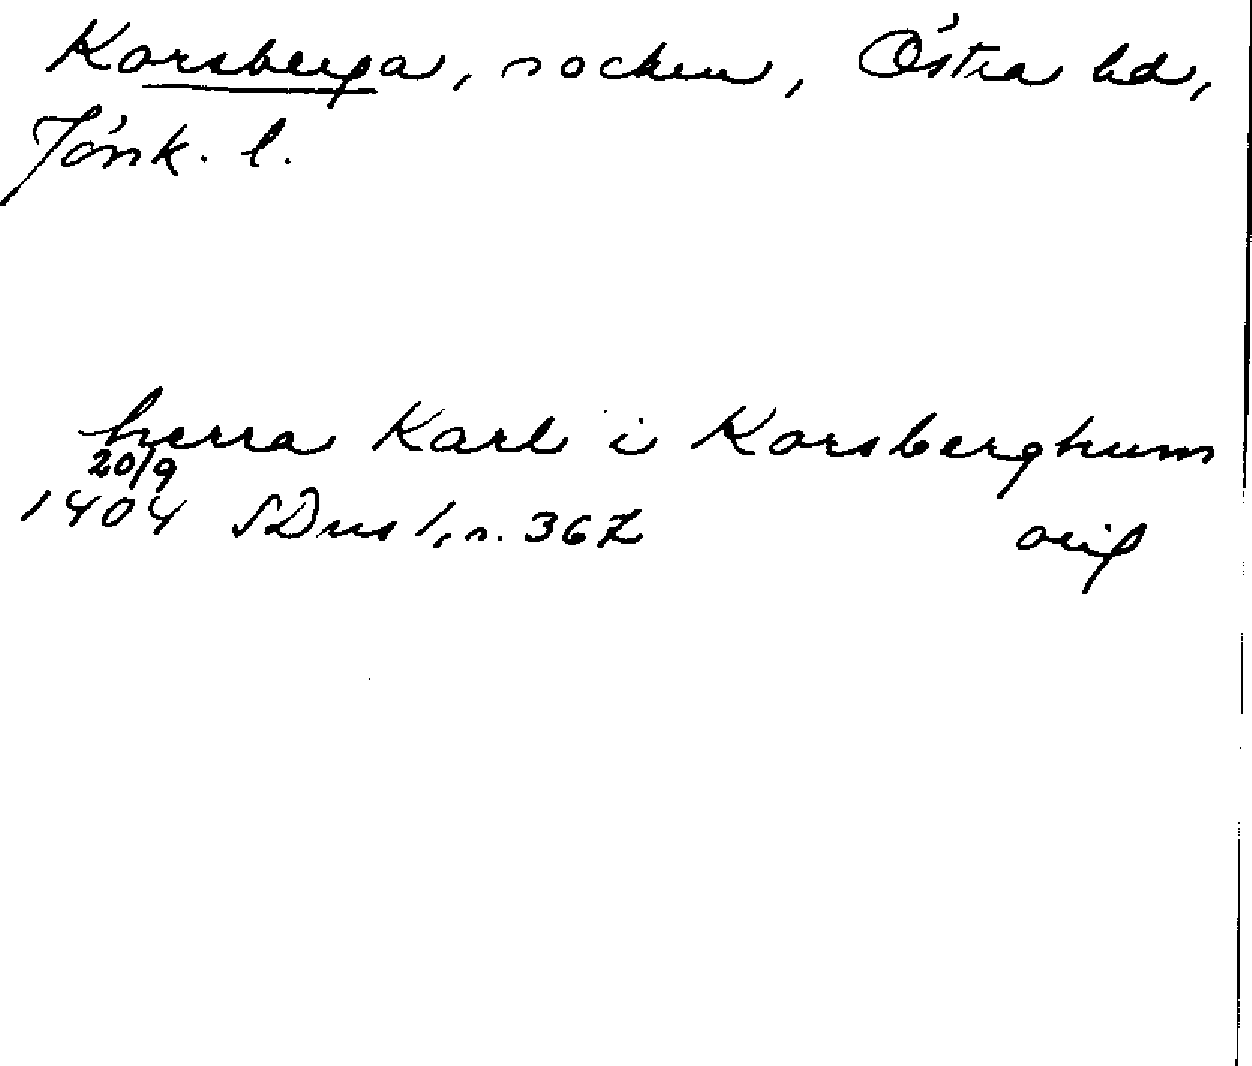 Korsberga, socken, Östra hd,
Jönk. l.
herra Karl i Korsberghum
20/9
1404 SDns 1, s. 367 orig